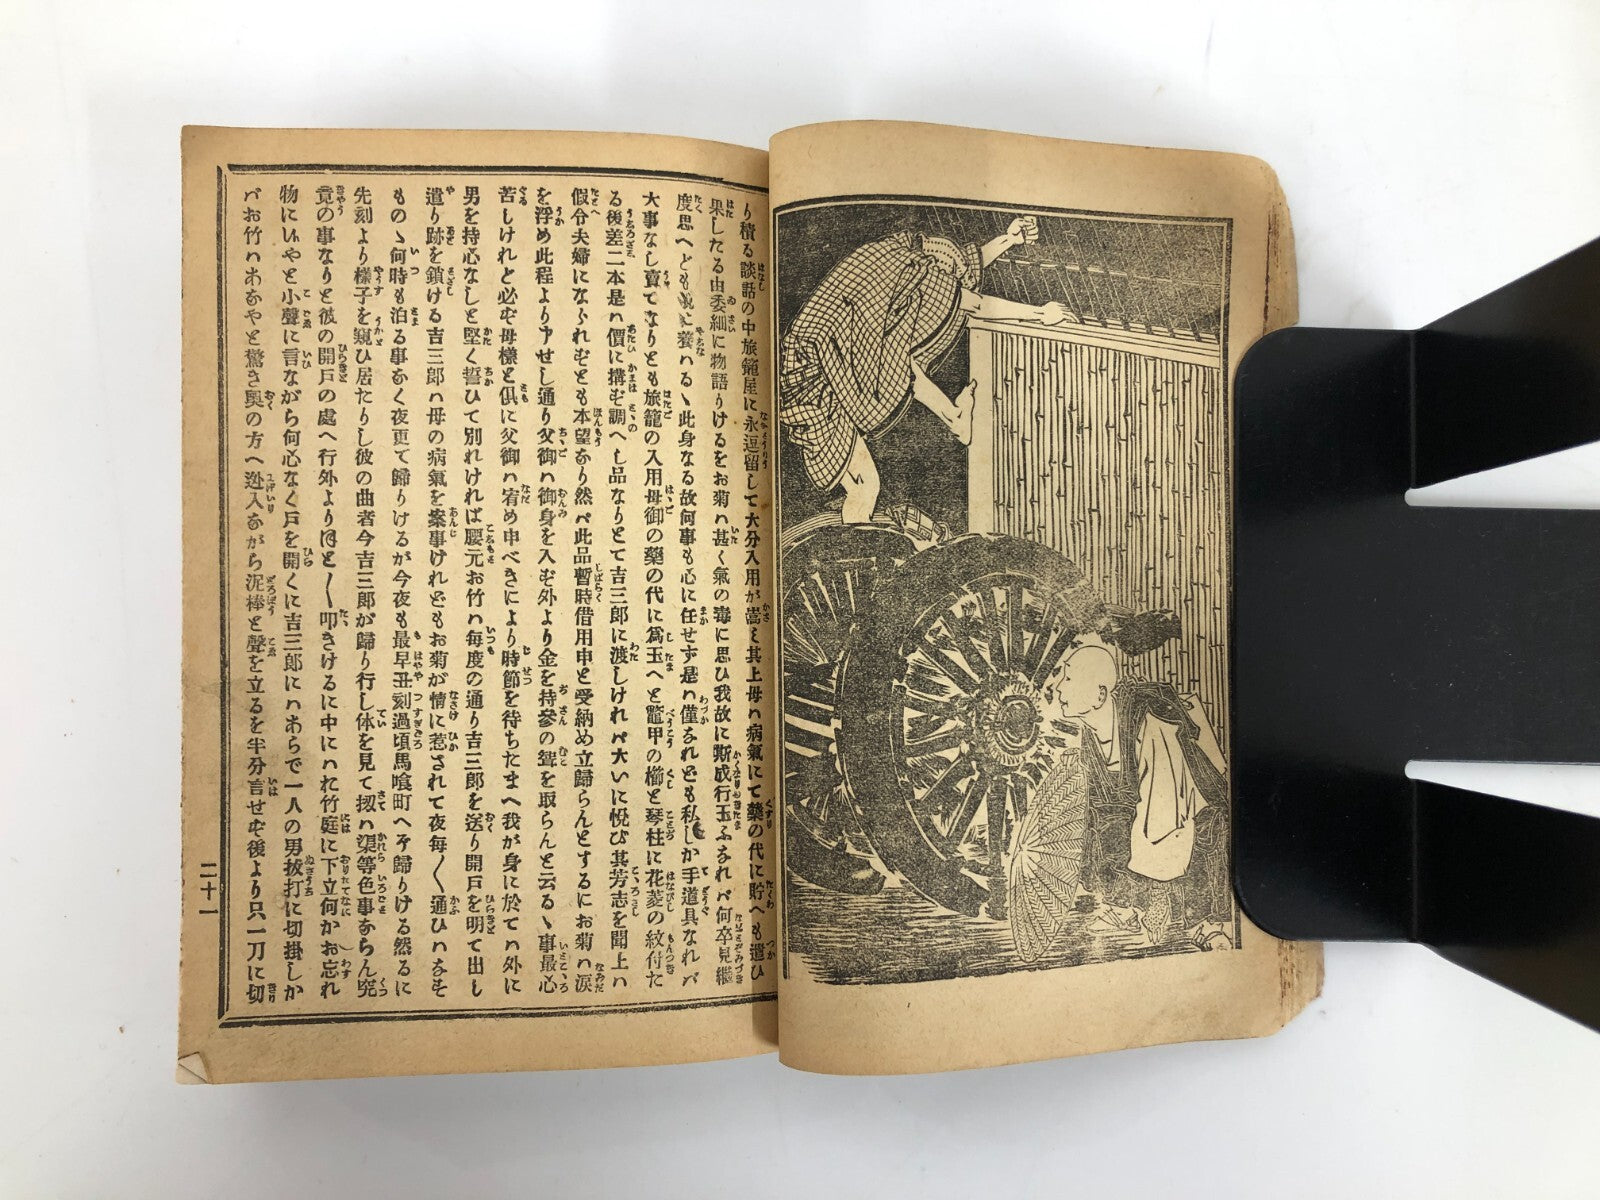 り積る談話の中旅籠屋に永逗留して大分入用が嵩き其上母ハ病氣にて藥の代に貯へも遣ひ
果したる由委細に物語りけるをお菊ハ甚く氣の毒に思ひ我故に斯成行玉ふなれバ何卒見繼
度思へども養ハるゝ此身なる故何事も心に任せず是ハ僅なれども私しか手道具なれバ
大事なし賣てなりとも旅籠の入用母御の藥の代に爲玉へと鼈甲の櫛と琴柱に花菱の紋付た
る後差二本是ハ價に搆ず調へし品なりとて吉三郎に渡しけれバ大いに悦び其芳志を聞上ハ
假令夫婦になられずとも本望なり然バ此品暫時借用申と受納め立歸らんとするにお菊ハ涙
を浮め此程より申せし通り父御ハ御身を入ず外より金を持參の聟を取らんと云るゝ事最心
苦しけれど必ず母樣と倶に父御ハ宥め申べきにより時節を待ちたまへ我が身に於てハ外に
男を持心なしと堅く誓ひて別れければ腰元お竹ハ毎度の通り吉三郎を送り開戸を明て出し
遣り跡を鎖ける吉三郎ハ母の病氣を案事けれどもお菊が情に惹されて夜毎〳〵通ひハなせ
ものゝ何時も泊る事なく夜更て歸りけるが今夜も最早丑刻過頃馬喰町へぞ歸りける然るに
先刻より樣子を窺ひ居たりし彼の曲者今吉三郎が歸り行し体を見て扨ハ渠等色事ならん究
竟の事なりと彼の開戸の處へ行外よりほと〳〵叩きけるに中にハお竹庭に下立何かお忘れ
物にハいやと小聲に言ながら何心なく戸を開くに吉三郎にハあらで一人の男拔打に切掛しか
バお竹ハあなやと驚き奥の方へ迯入ながら泥棒と聲を立るを半分言せず後より只一刀に切
二十一